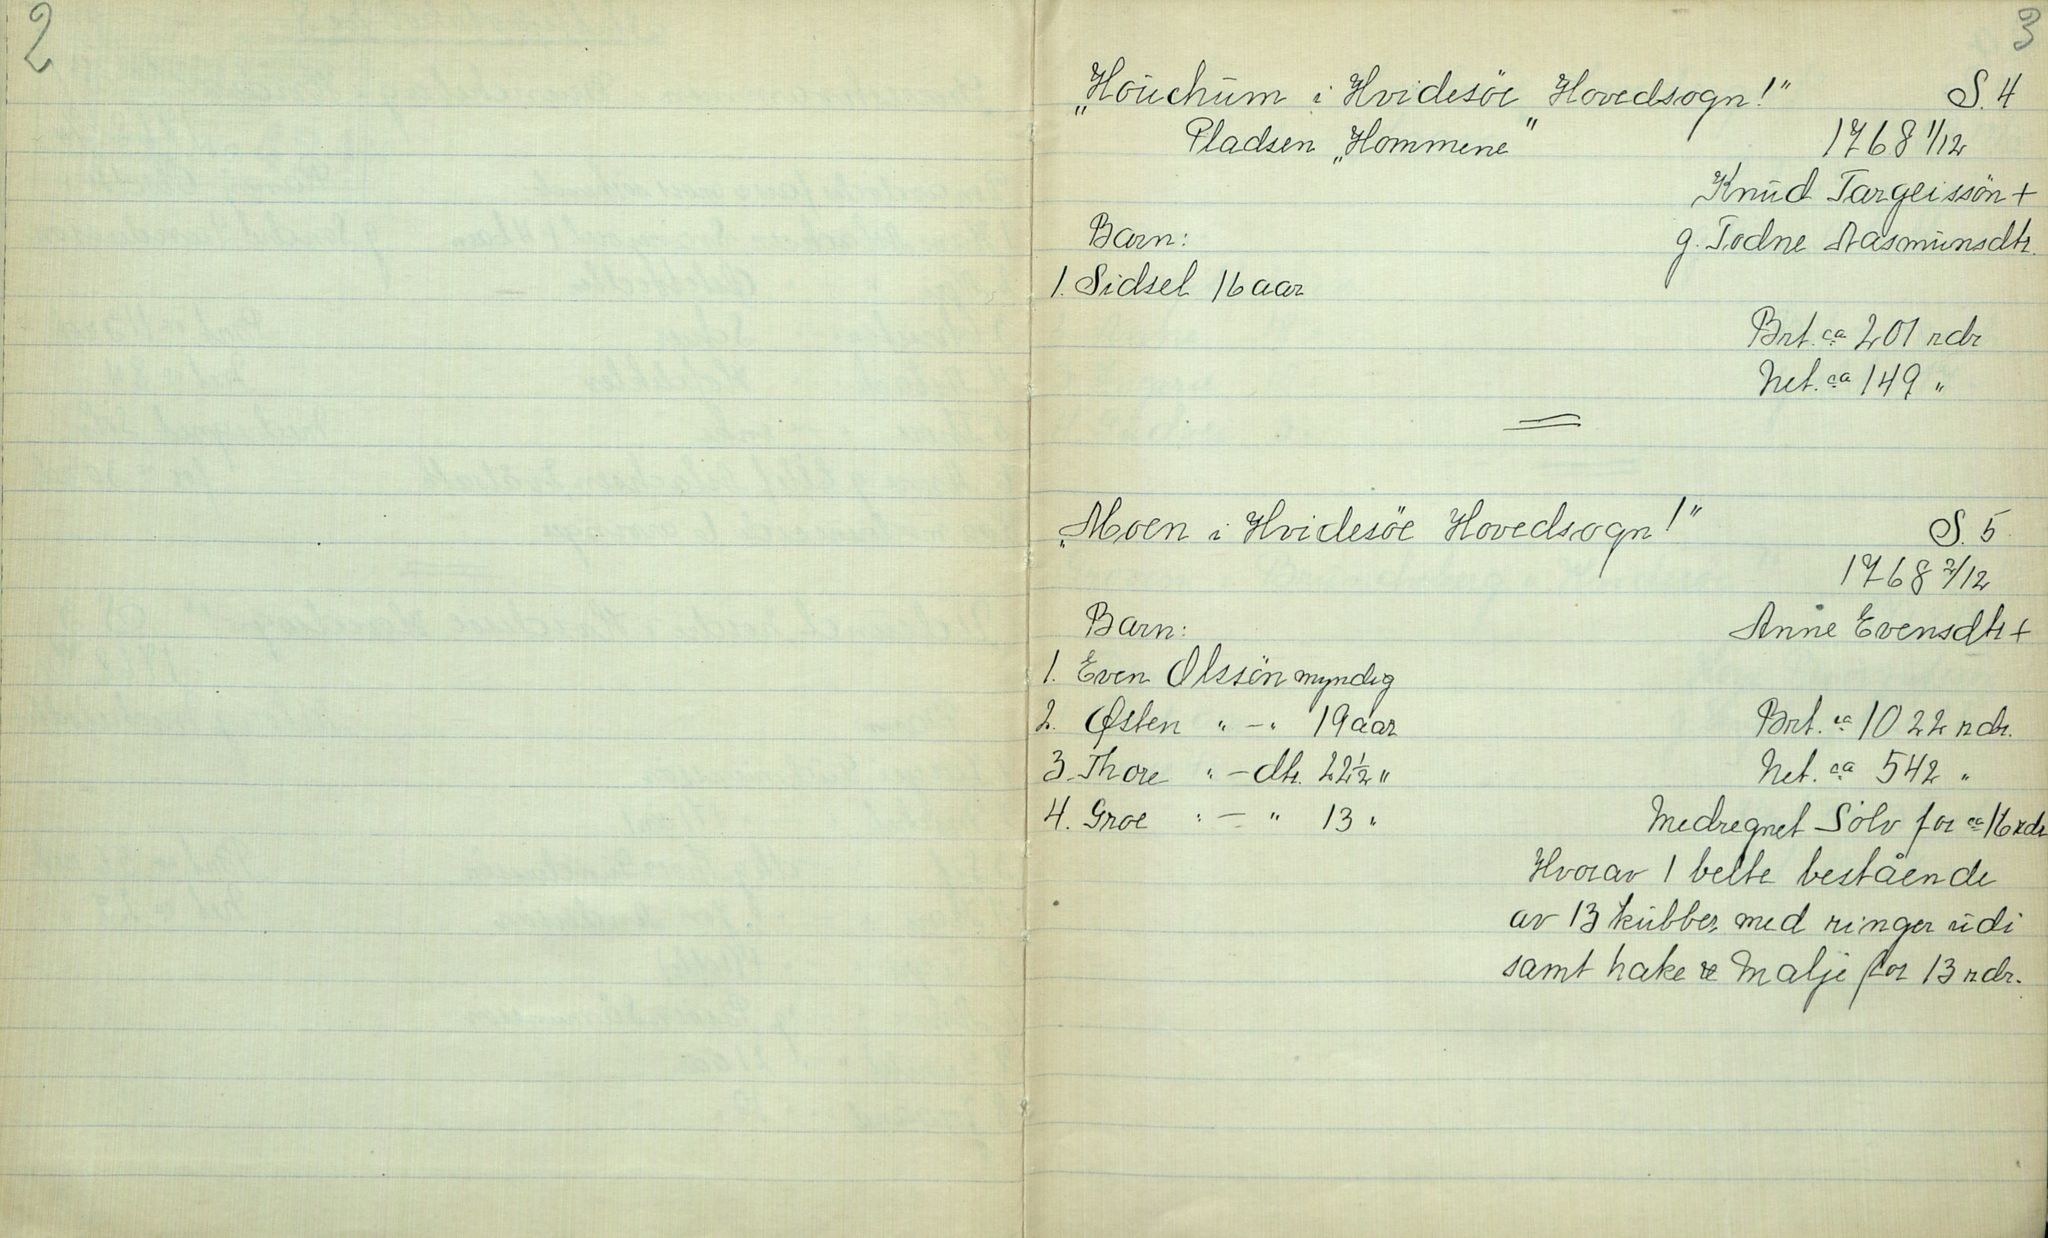 2
3
„Houchum i Hvidesöe Hovedsogn!" S. 4
Pladsen „Hommene" 1768 1/12
Knud Targeissön +
Barn: g. Todne Aasmunsdtr.
1. Sidsel 16 aar
Brt. ca 201 rdr
Net. ca 149 "
„Moen i Hvidesöe Hovedsogn!" S. 5
1768 2/12
Barn: Anne Evensdtr +
1. Even Olssön myndig
2. Østen " - " 19 aar Brt. ca 1022 rdr.
3. Thore " - dtr. 22 1/2 " Net. ca 542 "
4. Groe " - " 13 " Medregnet Sölv for ca 16 rdr
Hvorav 1 belte bestående
av 13 kubber med ringer udi
samt hake & Malje for 13 rdr.